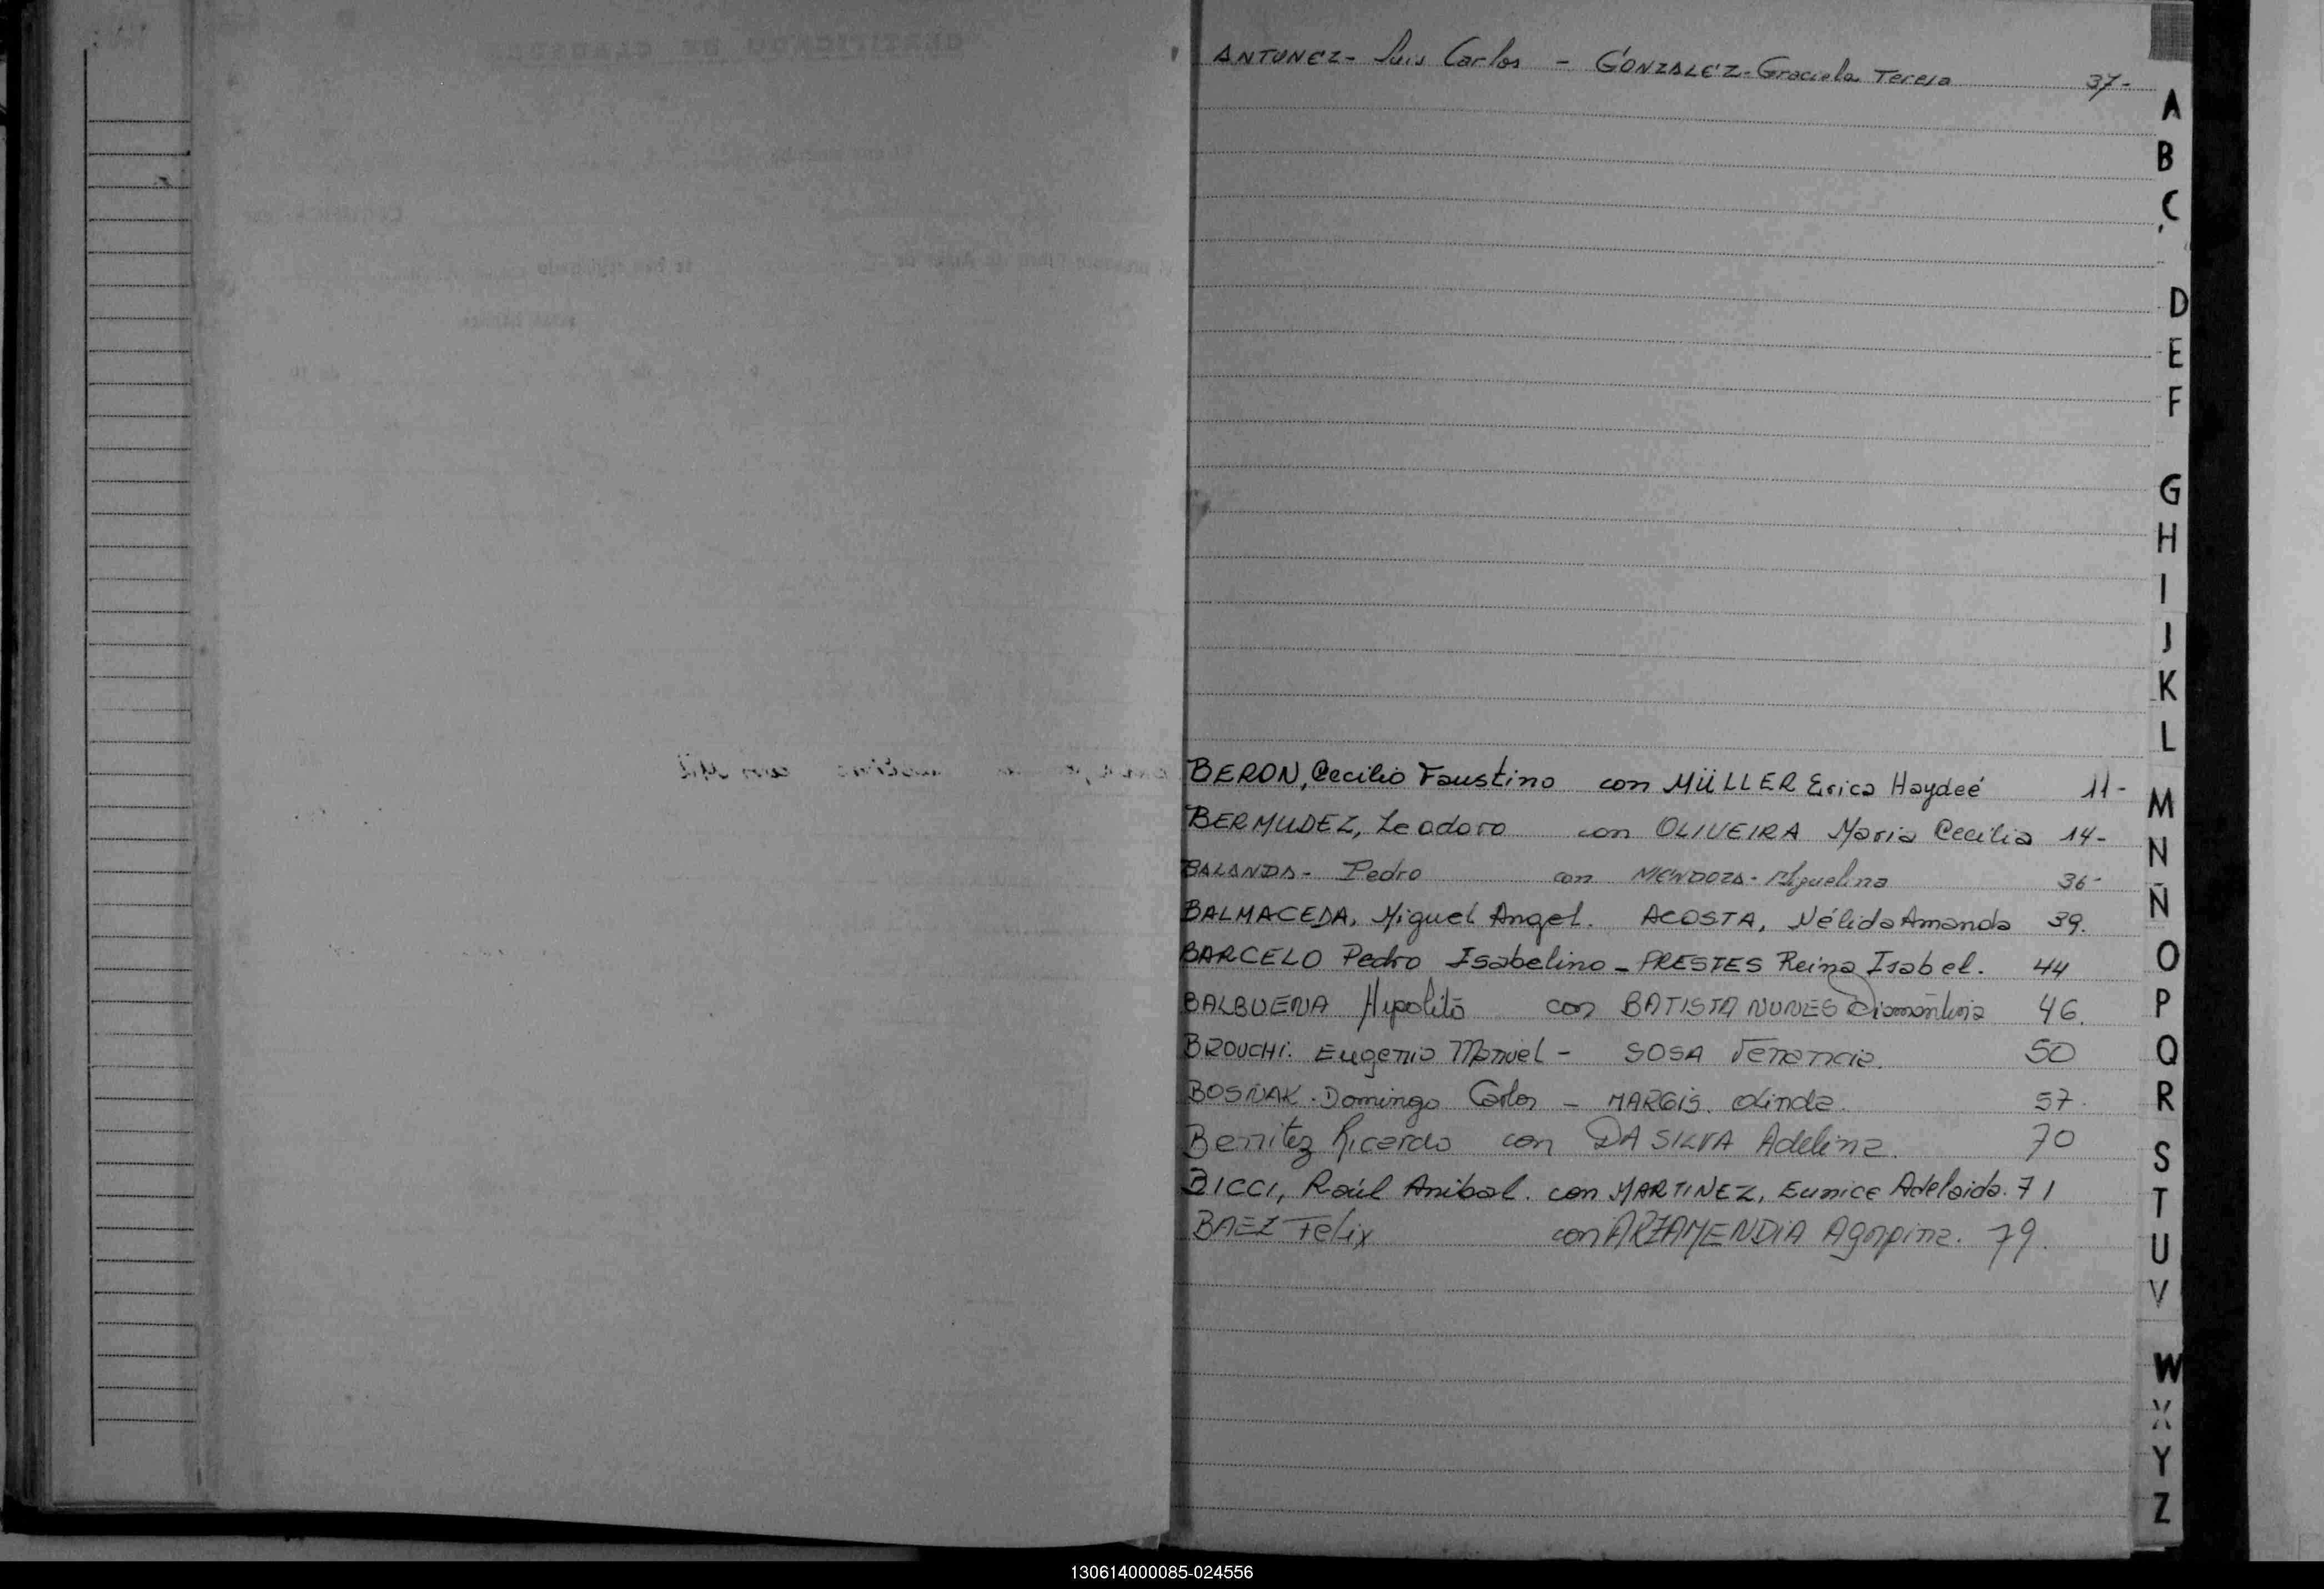 ANTUNEZ- Luis Carlos - GONZALEZ- Graciela Teresa 37-
BERON, Cecilio Faustino con MÜLLER Erica Haydeé 11-
BERMUDEZ, Leodoro con OLIVEIRA Maria Cecilia 14-
BALANDA- Pedro con MENDOZA- Miguelina 36-
BALMACEDA, Miguel Angel. ACOSTA, Nélida Amanda 39.
BARCELO Pedro Isabelino - PRESTES Reina Isabel. 44
BALBUENA Hipolito con BATISTA NUNES Diamantina 46.
BROUCHI. Eugenio Manuel - SOSA Venancia. 50
BOSÑAK. Domingo Carlos - MARGIS. Olinda. 57.
Benitez Ricardo con DA SILVA Adelina. 70
BICCI, Raúl Anibal. con MARTINEZ, Eunice Adelaida. 71
BAEZ Felix con ARZAMENDIA Agapina. 79.
A
B
C
D
E
F
G
H
I
J
K
L
M
N
Ñ
O
P
Q
R
S
T
U
V
W
X
Y
Z
130614000085-024556